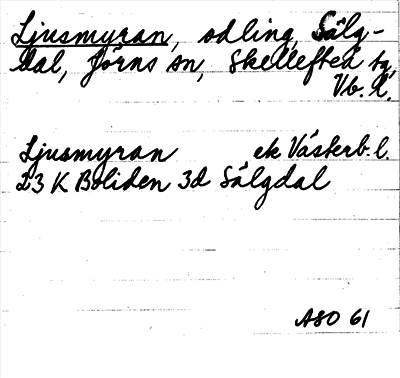 Ljusmyran, odling, Sälg-
dal, Jörns sn, Skellefteå tg,
Vb. l.
Ljusmyran ek Västerb. l.
23 K Boliden 3d Sälgdal
ASO 61